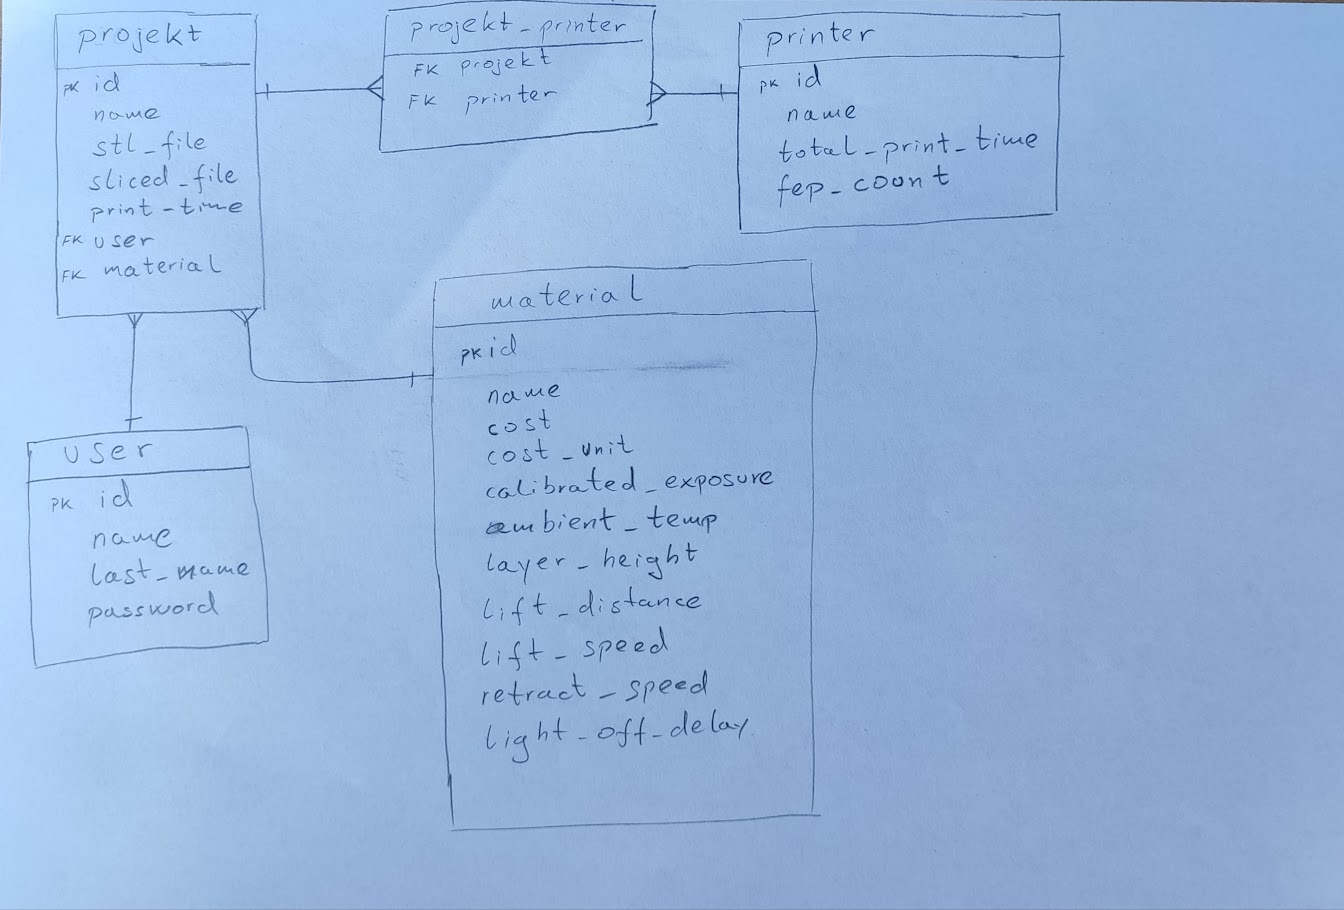 projekt
PK id
name
stl_file
sliced_file
print-time
FK user
FK material
projekt_printer
FK projekt
FK printer
printer
PK id
name
total_print_time
fep_count
material
PK id
name
cost
cost_unit
calibrated_exposure
ambient_temp
layer_height
lift_distance
lift_speed
retract_speed
light_off_delay
user
PK id
name
last_name
password